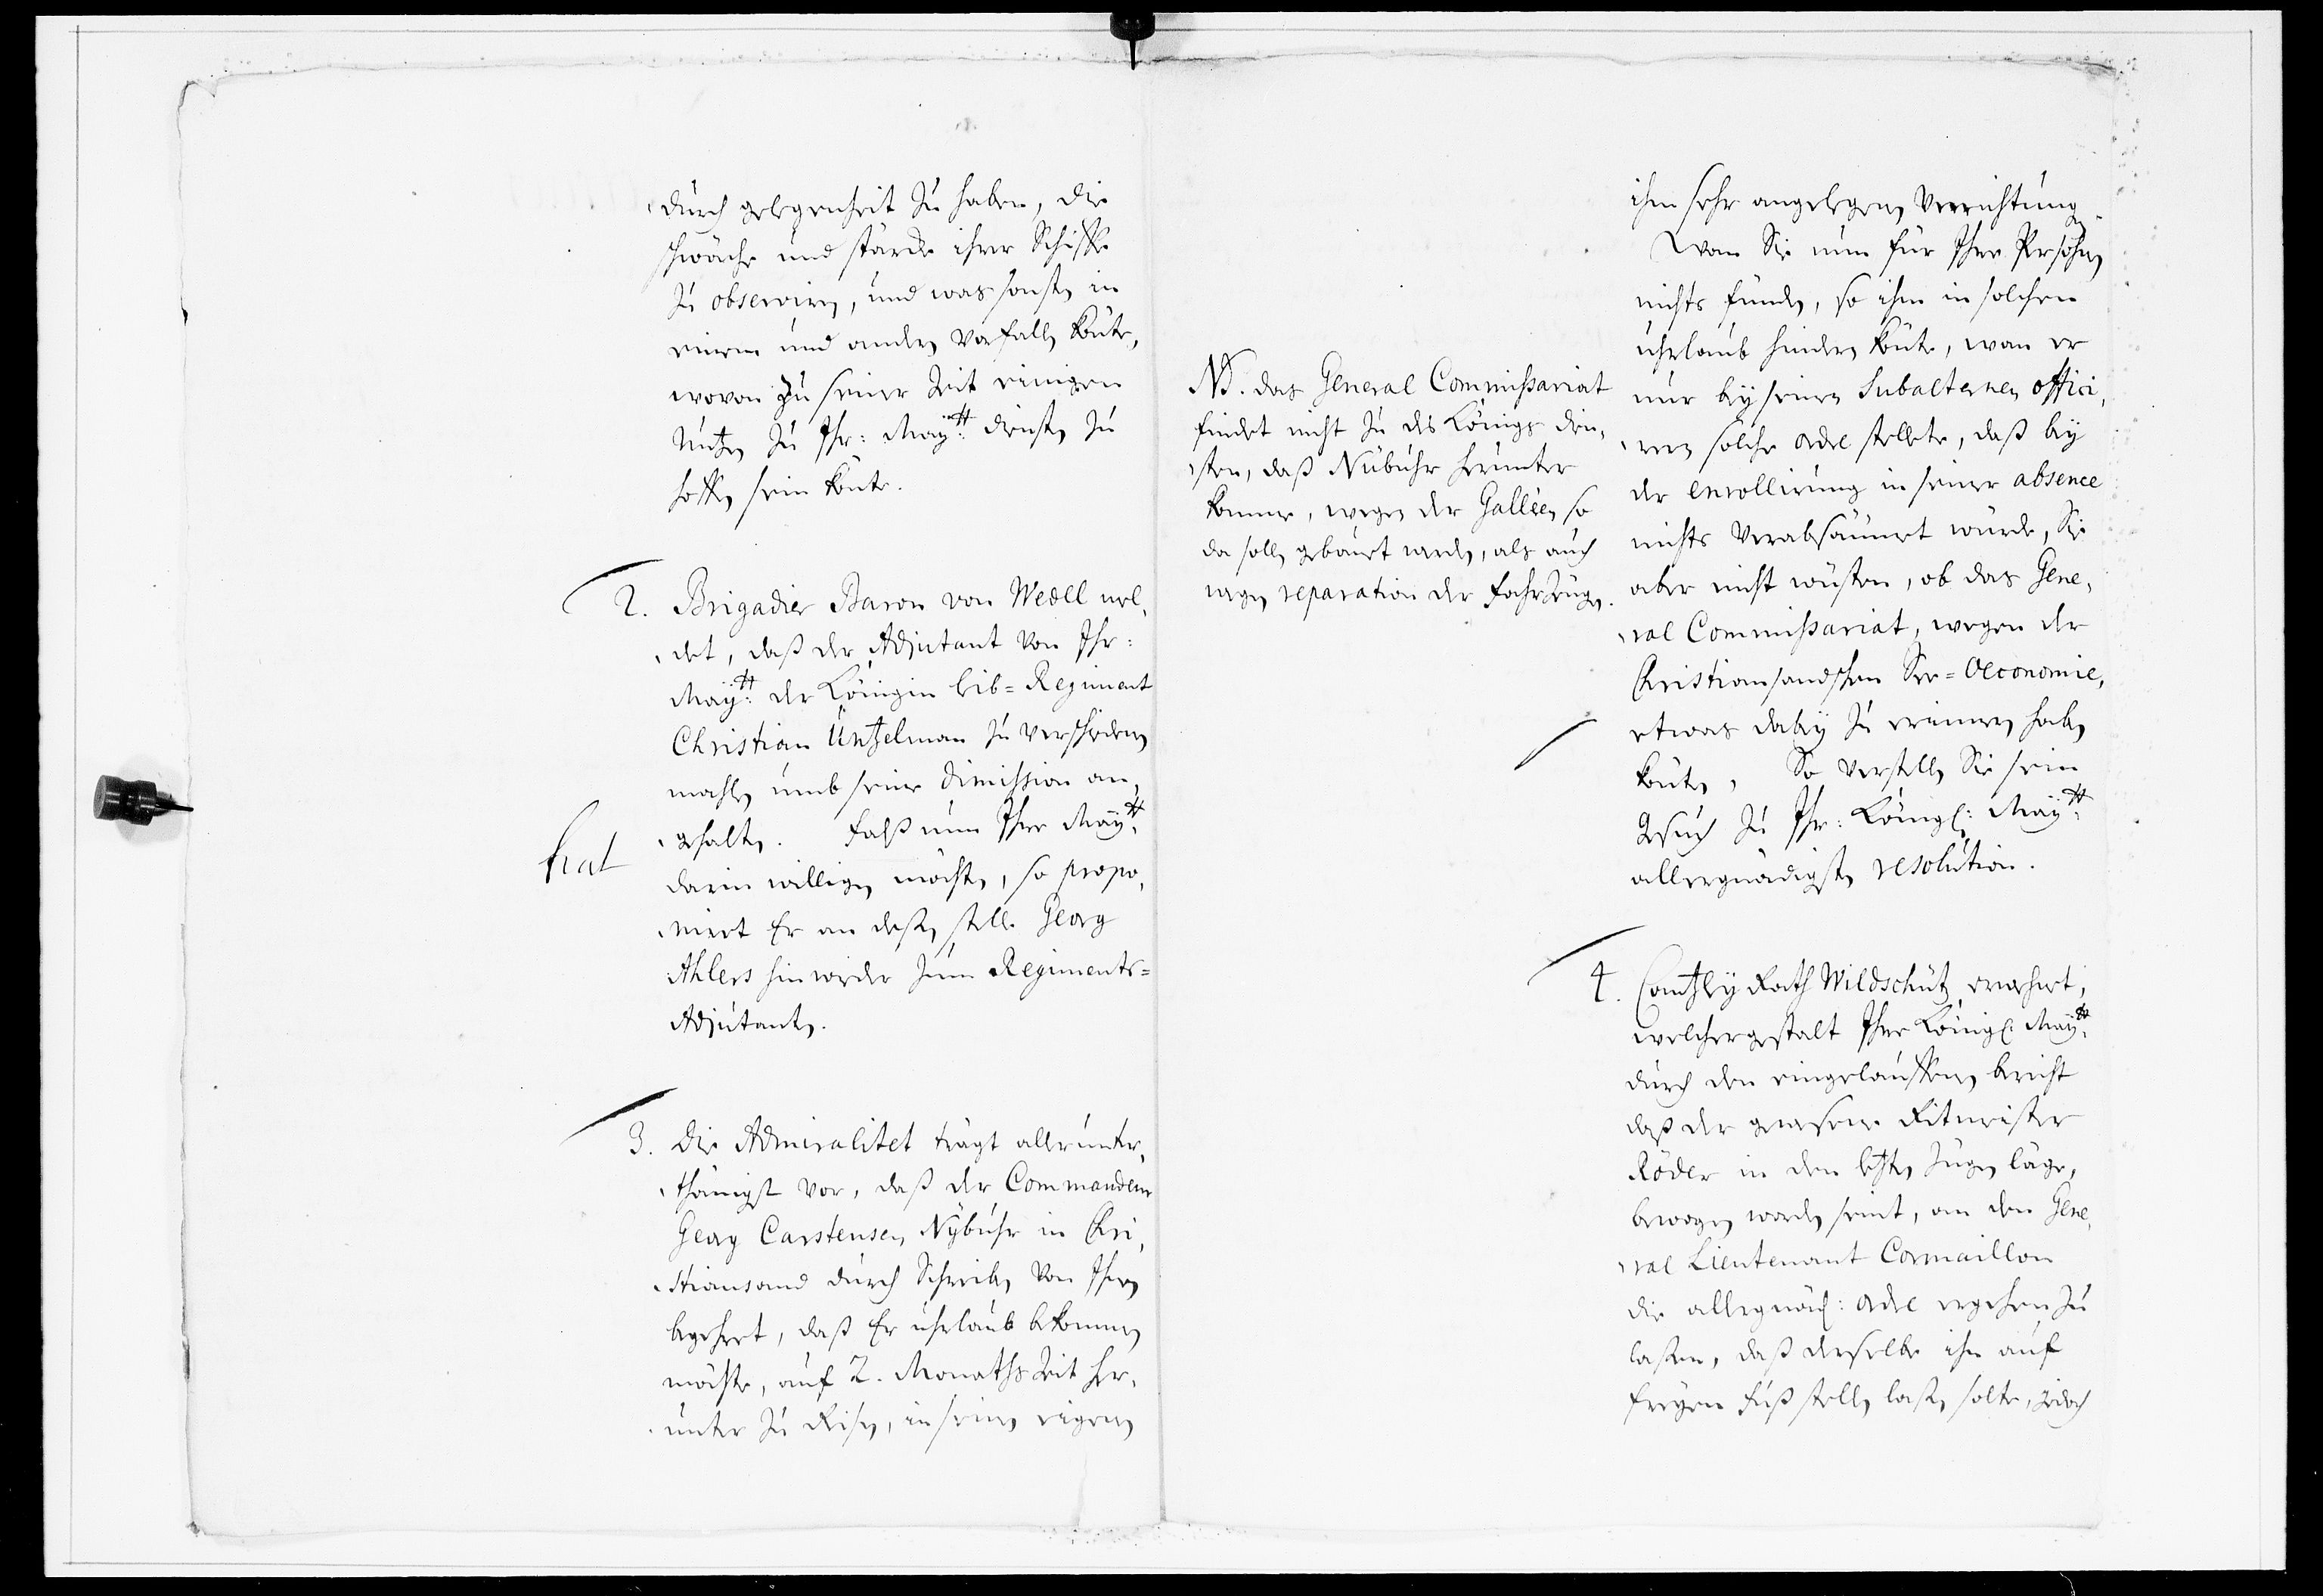 durch gelegenheit zu haben, die
schwäche und stärcke ihrer Schiffe
zu observiren, und was sonsten in
einem und andern vorfallen könte,
wovon zu seiner Zeit einigen
Nutzen zu Ihr: Maÿtt: diensten zu
hoffen sein könte.
2. Brigadier Baron von Wedell mel,
det, daß der Adjutant von Ihr:
Maÿtt: der Königin leib-Regiment
Christian Üntzelman zu verschiedenen
mahlen umb seine Dimission an,
gehalten. Falß nun Ihre Maÿtt:
hat
darin willigen möchten, so propo,
niert Er an deßen stelle Georg
Ahlers hinwieder zum Regiments-
Adjutanten.
3. Die Admiralitet trägt allerunter,
thänigst vor, daß der Commandeur
Georg Carstensen Nÿbuhr in Chri,
stiansand durch Schreiben von Ihnen
begehret, daß Er uhrlaub bekommen
möchte, auf 2. Monaths Zeit her,
unter zu Reisen, in seinen eigenen
NB. das General Commißariat
findet nicht zu des Königs dien,
sten, daß Nübuhr herunter
komme, wegen der Galléen so
da sollen gebauet werden, als auch
wegen reparation der Fahrzeuge.
ihm sehr angelegenen Verrichtung.
Wan Sie nun für Ihre Persohn
nichts funden, so ihm in solchen
uhrlaub hindern könte, wan er
nur beÿ seinen Subalternen offici,
ren solche ordre stellete, daß beÿ
der enrollirung in seiner absence
nichts Verabsäumet würde, Sie
aber nicht wüsten, ob das Gene,
ral Commißariat, wegen der
Christiansandschen See-Oeconomie,
etwas dabeÿ zu erinnern haben
könte, So verstellen Sie sein
Gesuch zu Ihr: Königl: Maÿtt:
allergnädigsten resolution.
4. Cantzleÿ Rath Wildschütz erwehnet,
welchergestalt Ihre Königl: Maÿtt:
durch den eingelauffenen bericht
daß der gewesene Ritmeister
Röder in den letzten Zügen läge,
bewogen worden seint, an den Gene,
ral Lieutenant Cormaillon
die allergnäd: ordre ergehen zu
laßen, daß derselbe ihn auf
freÿen Fuß stellen laßen solte, jedoch